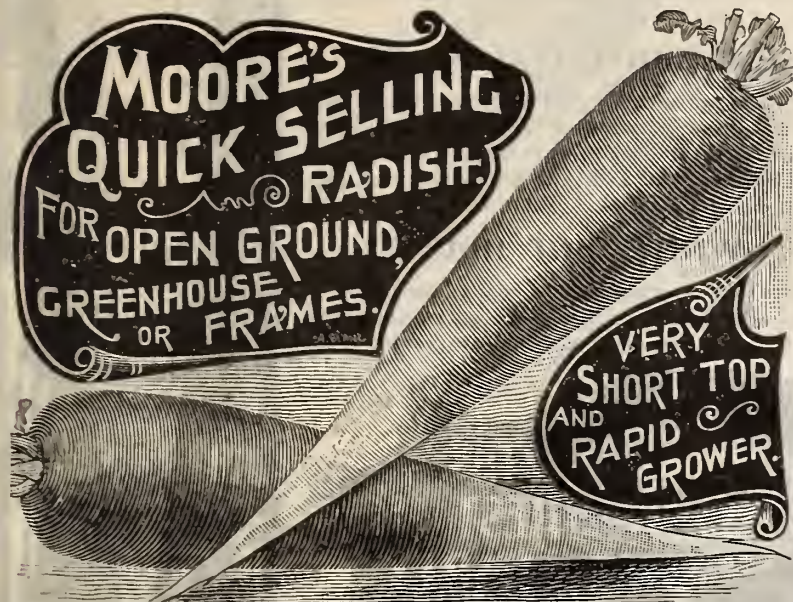 MOORE'S
QUICK SELLING
RADISH.
FOR OPEN GROUND,
GREENHOUSE
OR FRAMES.
VERY
SHORT TOP
AND
RAPID
GROWER.